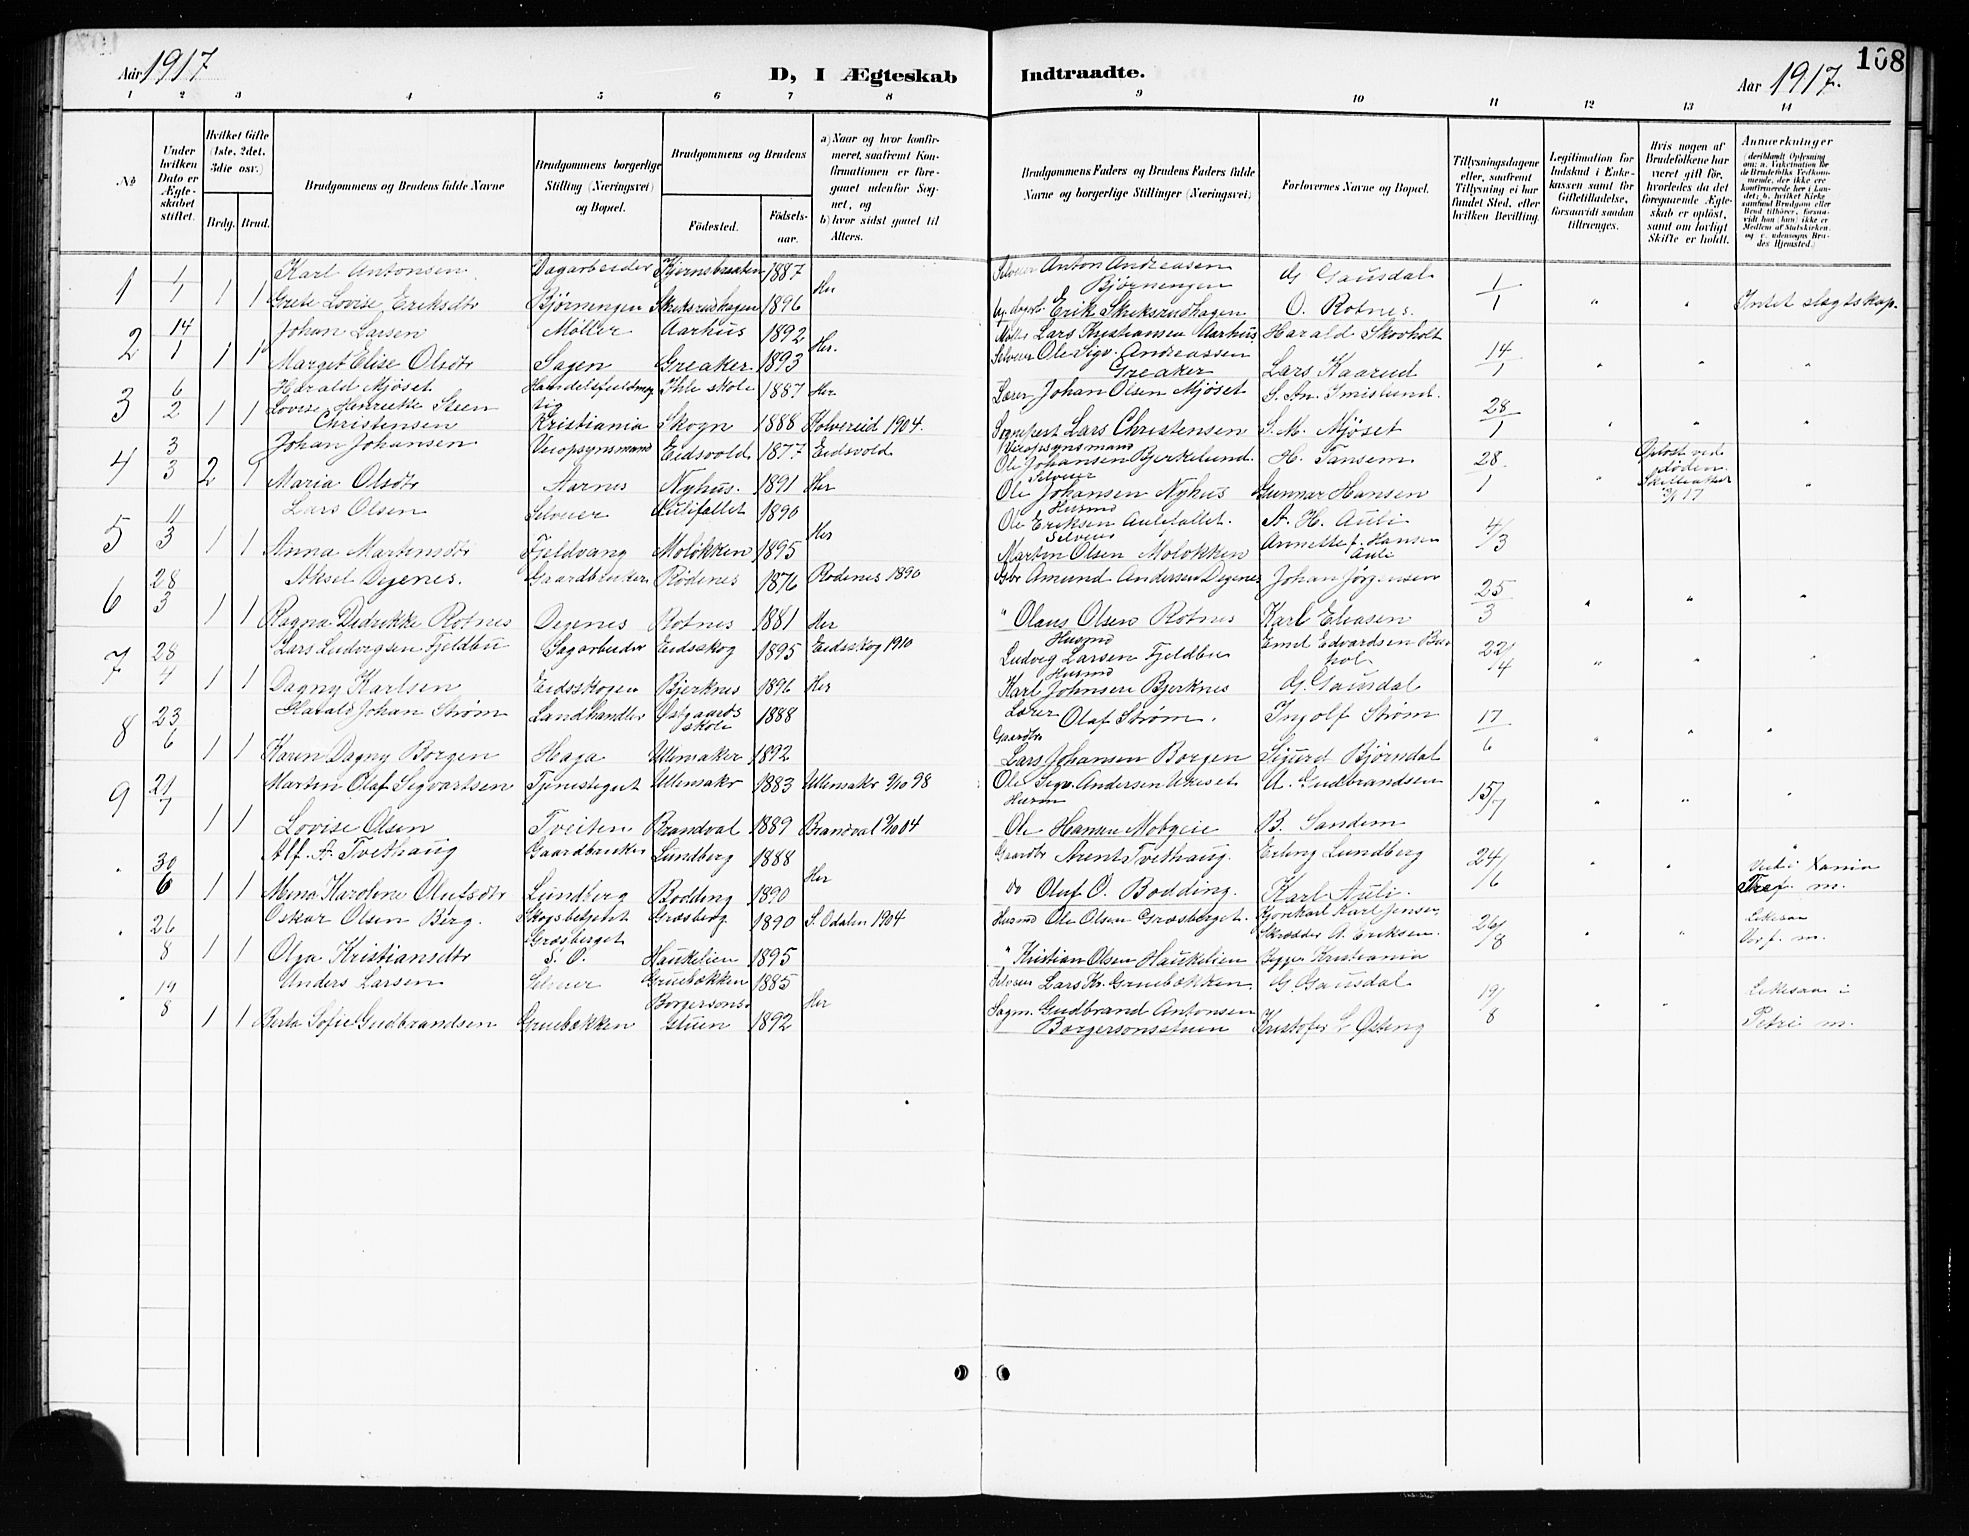 108
Aar 1917
D, I Ægteskab Indtraadte.
Aar 1917.
1 2 3 4 5 6 7 8 9 10 11 12 13 14
No
Under hvilken Dato er Ægteskabet stiftet.
Hvilket Gifte (1ste, 2det, 3die osv.)
Brdg. Brud.
Brudgommens og Brudens fulde Navne
Brudgommens borgerlige Stilling (Næringsvei) og Bopæl.
Brudgommens og Brudens
Fødested.
Fødselsaar.
a) Naar og hvor konfirmeret, saafremt Konfirmationen er foregaaet udenfor Sognet, og
b) hvor sidst gaaet til Alters.
Brudgommens Faders og Brudens Faders fulde Navne og borgerlige Stillinger (Næringsvei)
Forlovernes Navne og Bopæl.
Tillysningsdagene eller, saafremt Tillysning ei har fundet Sted, efter hvilken Bevilling.
Legitimation for Indskud i Enkekassen samt for Giftetilladelse, forsaavidt saadan tiltrænges.
Hvis nogen af Brudefolkene har været gift før, hvorledes da det foregaaende Ægteskab er opløst, samt om lovligt Skifte er holdt.
Anmerkninger
(deriblandt Oplysning om: a. Vakcination for de Brudefolks Vedkommende, der ikke ere konfirmerede her i Landet; b. hvilket Kirkesamfund Brudgom eller Brud tilhører, forsaavidt han (hun) ikke er Medlem af Statskirken, og c. udensogns Brudes Hjemsted.)
1 1/1 Karl Antonsen Dagarbeider 1887 Selveier Anton Andreasen Bjørnengen G. Gausdal 1/1
1 1 Grete Lovise Eriksdtr Bjørnengen Skriksrudhagen 1896 Her Erik Skriksrudhagen O. Rotnes. " " Intet slegtskap.
2 14/1 Johan Larsen Møller Aarhus 1892 Møller Lars Kristiansen Aarhus Harald Skovholt 14/1
1 1 Marget Elise Olsdtr Sagen Greaker 1893 Her. Selveier Ole Sigv. Andreassen Greaker Lars Kaarud " " "
3 6/2 Harald Mjøset 1887 Her Lærer Johan Olsen Mjøset 28/1
1 1 Lovise Henrikke Steen Christensen Kristiania Skogn 1888 Kolvereid 1904. Sogneprest Lars Christensen S. M. Mjøset " " "
4 3/3 Johan Johansen Veiopsynsmand Eidsvold 1877 Eidsvold Veiopsynsmand Ole Johansen Bjerkelund. H. Tansem 28/1 Opløst ved døden.
2 1 Maria Olsdtr Aarnes Nyhus. 1891 Her Selveier Ole Johansen Nyhus Gunnar Hansen " "
5 11/3 Lars Olsen Selveier Aulifallet 1890 Husmd Ole Eriksen Aulefallet. A. H. Auli 4/3
1 1 Anna Martinsdtr Fjeldvang Moløkken 1895 Her Selveier Marton Olsen Moløkken Annette f. Hansen Auli
6 28/3 Aksel Degenes. Gaardbruker Rødenes 1876 Rødenes 1890 Gbr Amund Andersen Degenes Johan Jørgensen 25/3
1 1 Ragna Didrikke Rotnes Degenes Rotnes 1881 Her " Olaus Olsen Rotnes Karl Eliasen " " "
7 28/4 Lars Ludvigsen Fjeldbu Sagarbeider Eidsskog 1895 Eidsskog 1910 Husmd Ludvig Larsen Fjeldbu Emil Edvardsen 22/4
1 1 Dagny Karlsen Eidsskogen Bjerknes 1896 Her Husmd Karl Johnsen Bjerknes G. Gausdal " " "
8 23/6 Harald Johan Strøm Landhandler Østgaards skole 1888 Lærer Olaf Strøm. Ingolf Strøm 17/6
1 1 Karen Dagny Borgen Haga Ullensaker 1892 Gaardbr Lars Johansen Borgen Sigurd Bjørndal " " "
9 21/7 Martin Olaf Sigvartsen Tjenestegut Ullensakr 1883 Ullensakr 9/10 98 Ole Sigv. Andersen A. Gudbrandsen 15/7
1 1 Lovise Olsen Tveiten Brandval 1889 Brandval 04 Husm Ole Hansen B. Sandem " " "
" 30/6 Alf. A. Tvethaug Gaardbruker Lundberg 1888 Gaardbr Arent Tvethaug. Erling Lundberg 24/6 " " "
1 1 Mina Karoline Olufsdtr Lundberg Bodding 1890 Her do Oluf O. Bodding. Karl Auli. m.
" 26/8 Oskar Olsen Berg. Skogsbetjent Græsberg 1890 S. Odalen 1904 Husmd Ole Olsen Græsberget. Karl Jensen 26/8
1 1 Olga Kristiansdtr Græsberget S. O. Haukelien 1895 " Kristian Olsen Haukelien Skrædder A. Eriksen. Kristiania " " m.
" 19/8 Anders Larsen Selveier Gruebækken 1885 Selveier Lars Kr. Gruebækken. G. Gausdal 19/8
1 1 Berta Sofie Gudbrandsen Gruebækken Borgersonstuen 1892 Her Sagm. Gudbrand Antonsen Borgersonstuen Kristofer L Østeng " " Petri m.